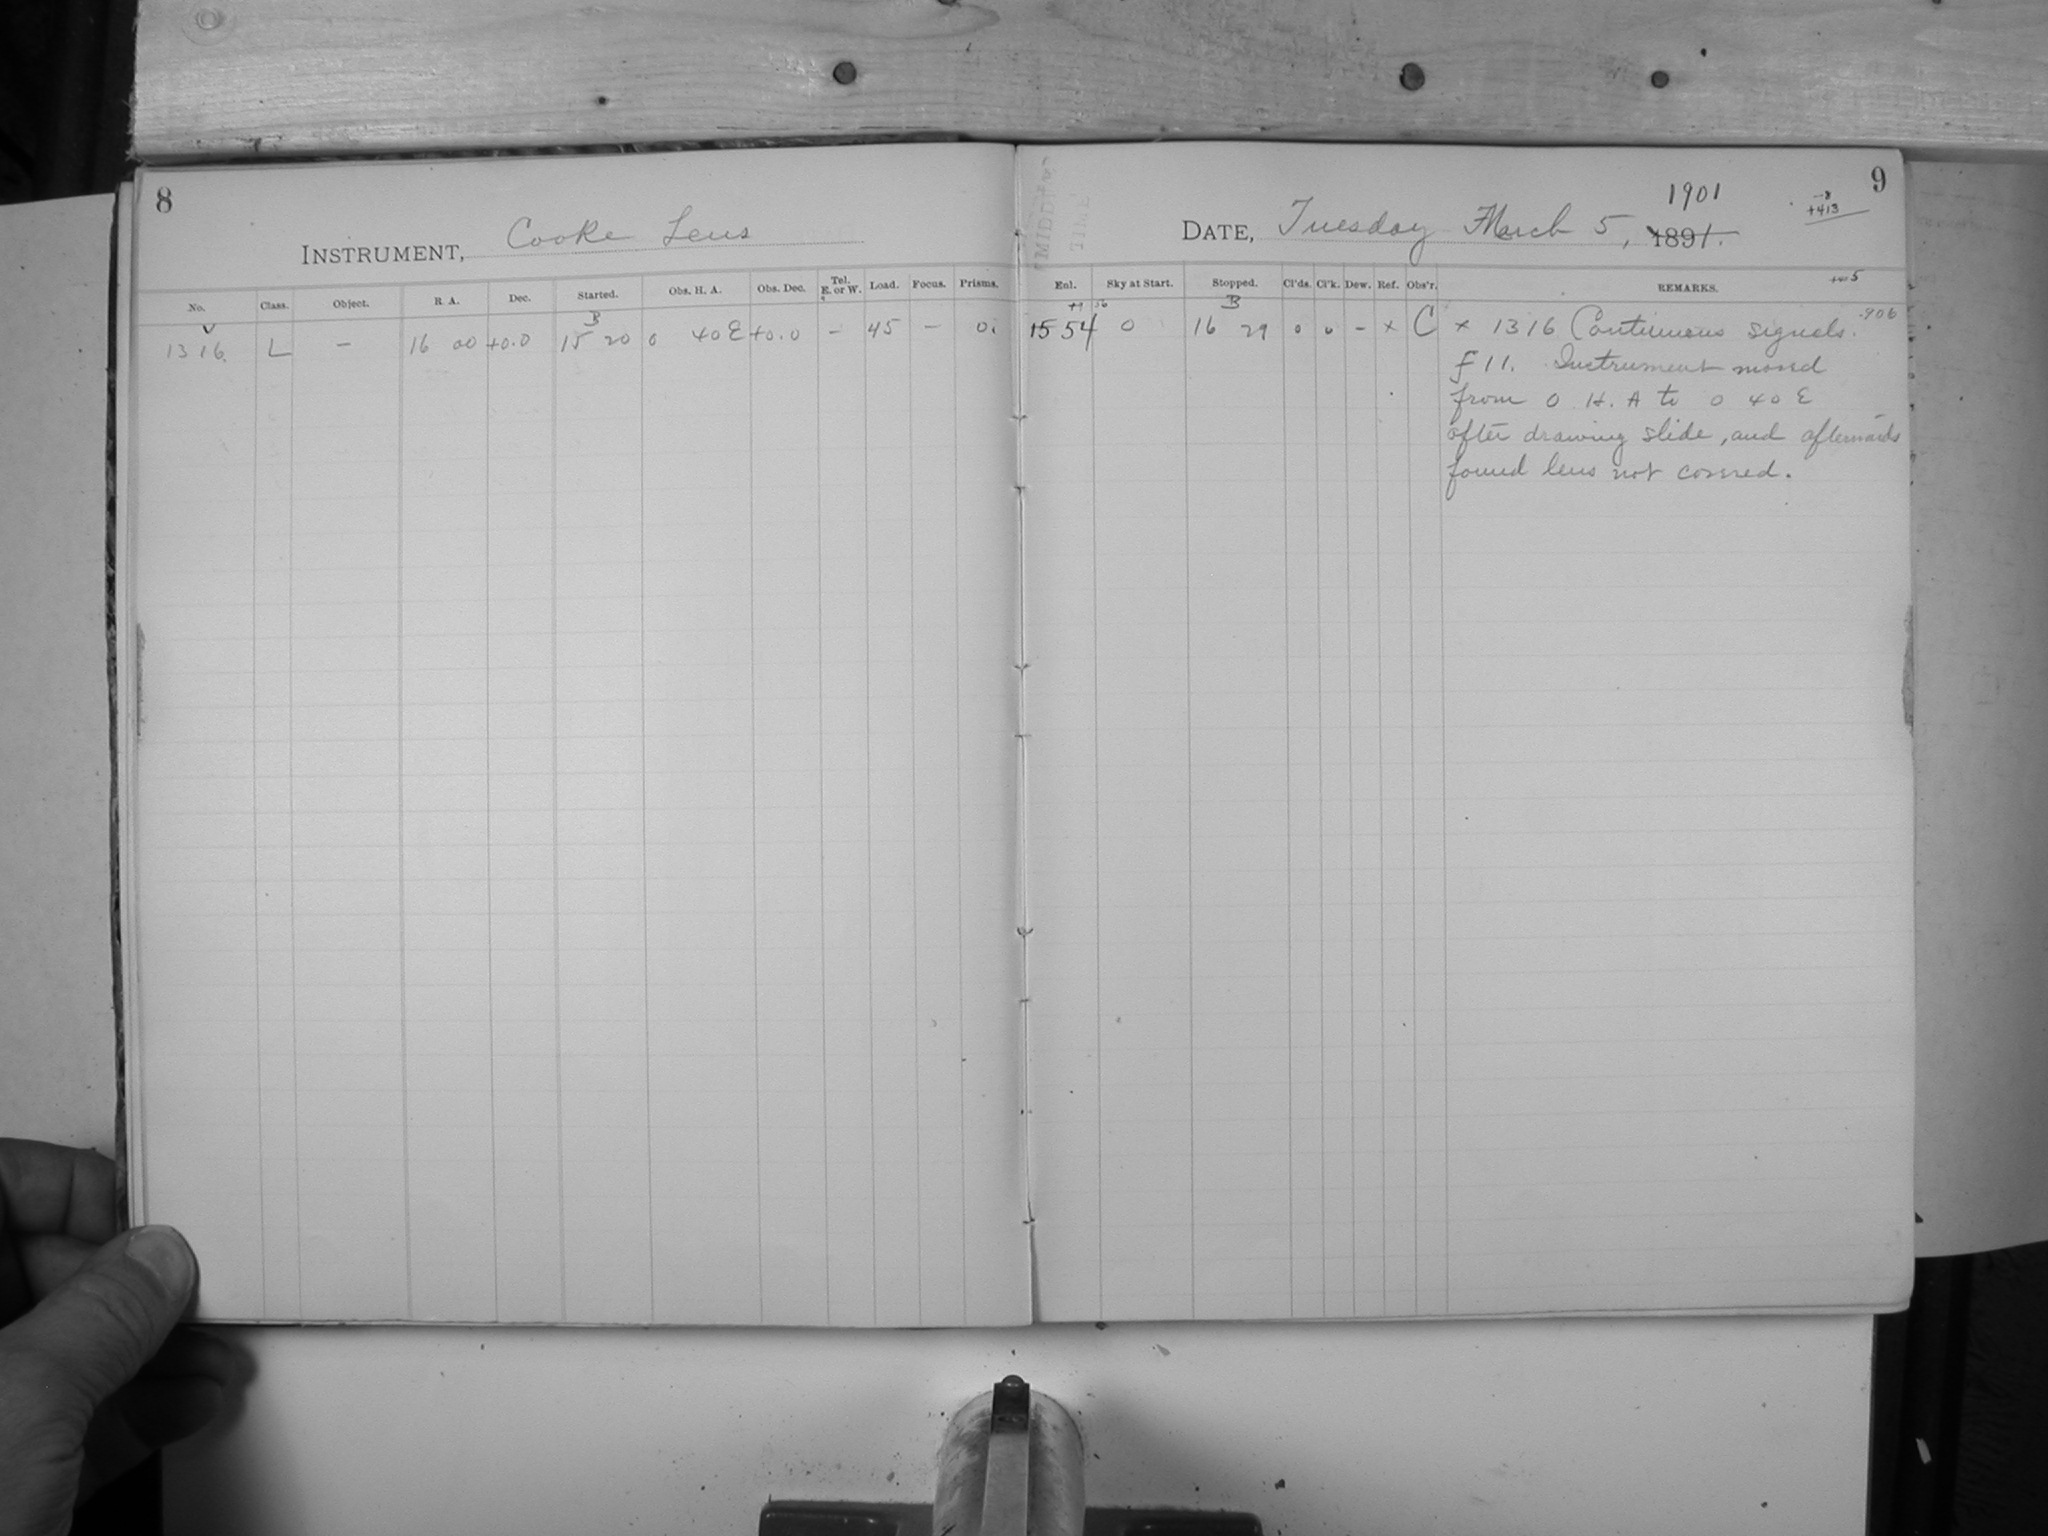 8
INSTRUMENT, Cooke Lens
No. Class. Object. R. A. Dec. Started. Obs. H. A. Obs. Dec. Tel. E. or W. Load. Focus. Prisms.
B
1316 L – 16 00 +0.0 15 20 0 40 E +0.0 – 45 – 0.
9
1901
–8
+413
DATE, Tuesday March 5, 1891.
+5
Enl. Sky at Start. Stopped. Cl'ds. Cl'k. Dew. Ref. Obs'r. REMARKS.
+9 36 B
15 54 0 16 29 0 0 – × C × 1316 Continuous signals. .906
f 11. Instrument moved
from 0 H. A to 0 40 E
after drawing slide, and afterwards
found lens not covered.